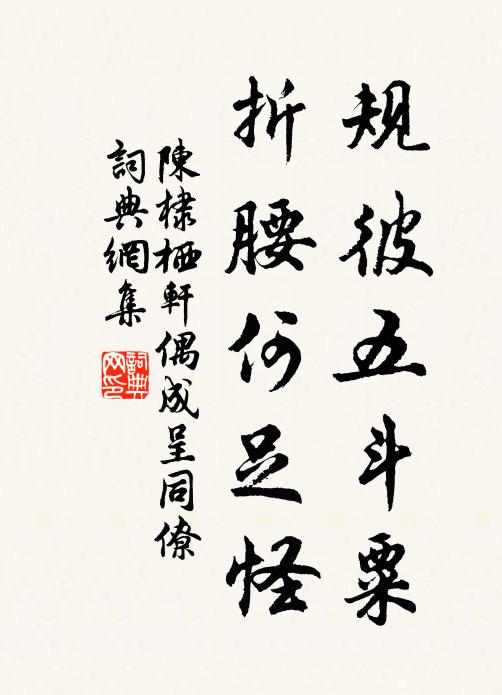 規彼五斗粟
折腰何足怪
陳棣栖軒偶成呈同僚
詞典網集
詞典
网印